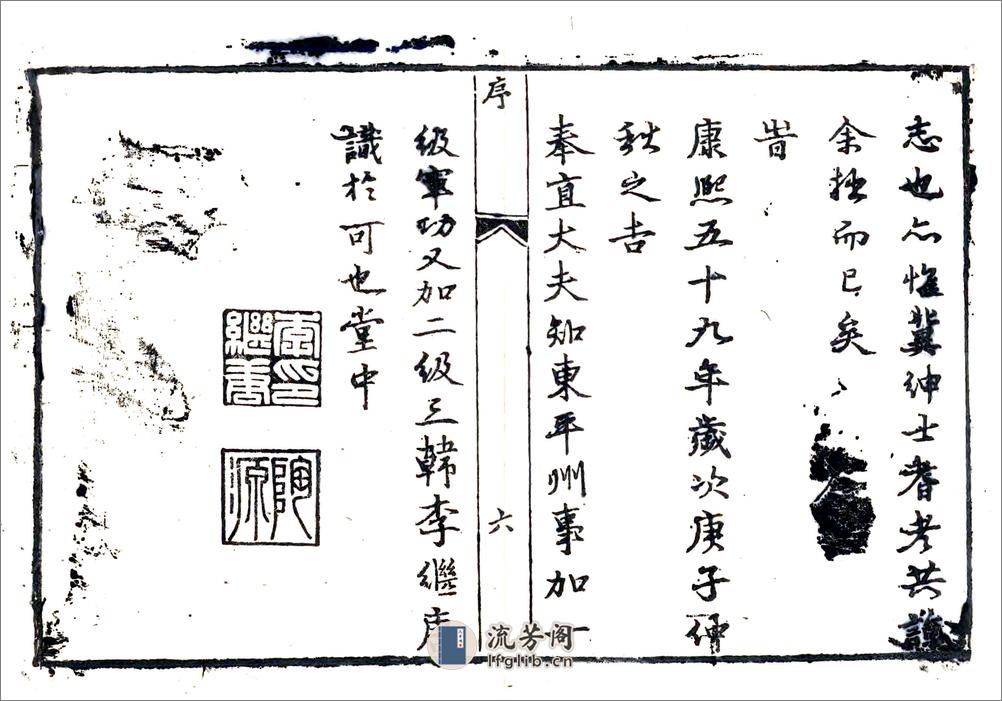 志也亦惟冀紳士耆老共諒
余拙而已矣
旹
康熙五十九年歲次庚子仲
秋之吉
奉直大夫知東平州事加一
序
六
級軍功又加二級三韓李繼唐
識於可也堂中
李印繼唐
陶源
流芳阁
lfglib.cn